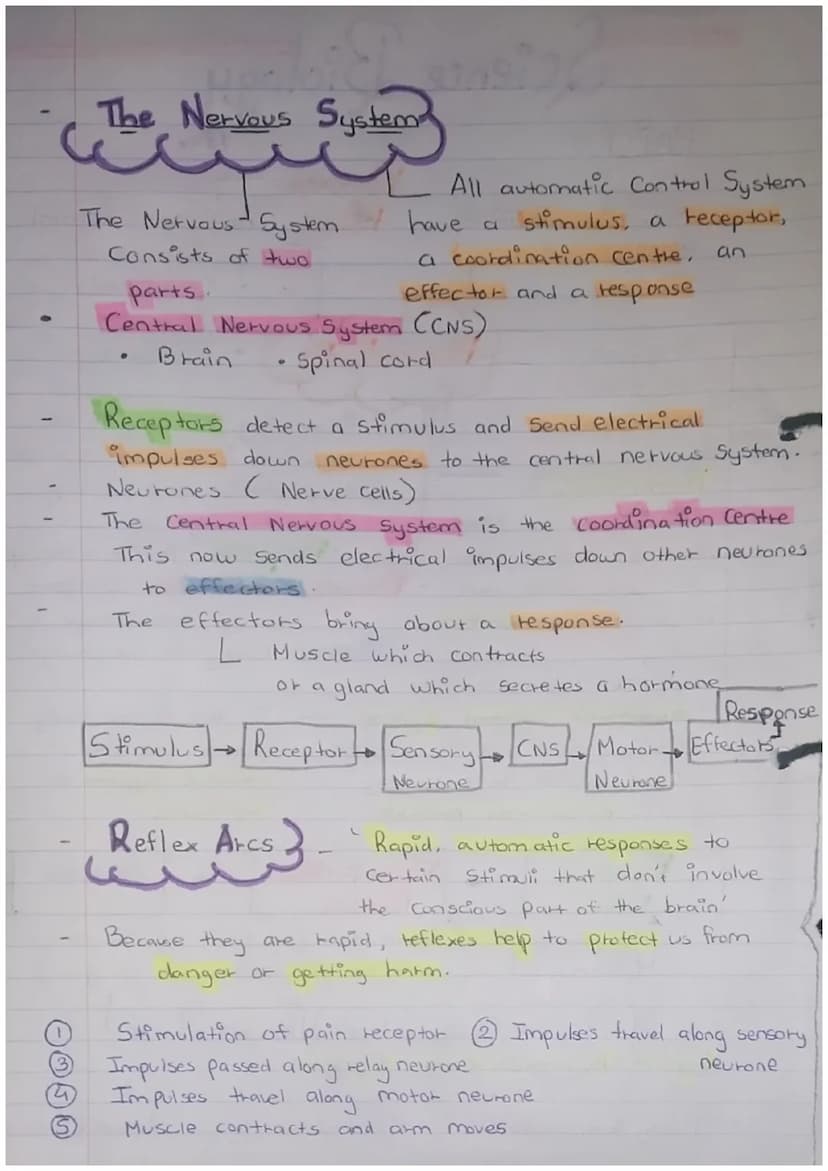 - The Nervous System
The Nervous System
Consists of two
parts.
All automatic Control System
have a stimulus, a receptor,
a coordination centre, an
effector and a response
• Central Nervous System (CNS)
• Brain • Spinal cord
- Receptors detect a stimulus and send electrical
impulses down neurones to the central nervous system.
- Neurones ( Nerve cells)
- The Central Nervous System is the coordination centre
This now sends electrical impulses down other neurones
to effectors.
- The effectors bring about a response.
Muscle which contracts
or a gland which secretes a hormone
Response
Stimulus → Receptor → Sensory → CNS → Motor → Effectors
Neurone Neurone
- Reflex Arcs - ' Rapid, automatic responses to
certain stimuli that don't involve
the conscious part of the brain'
- Because they are rapid, reflexes help to protect us from
danger or getting harm.
① Stimulation of pain receptor ② Impulses travel along sensory
neurone
③ Impulses passed along relay neurone
④ Impulses travel along motor neurone
⑤ Muscle contracts and arm moves